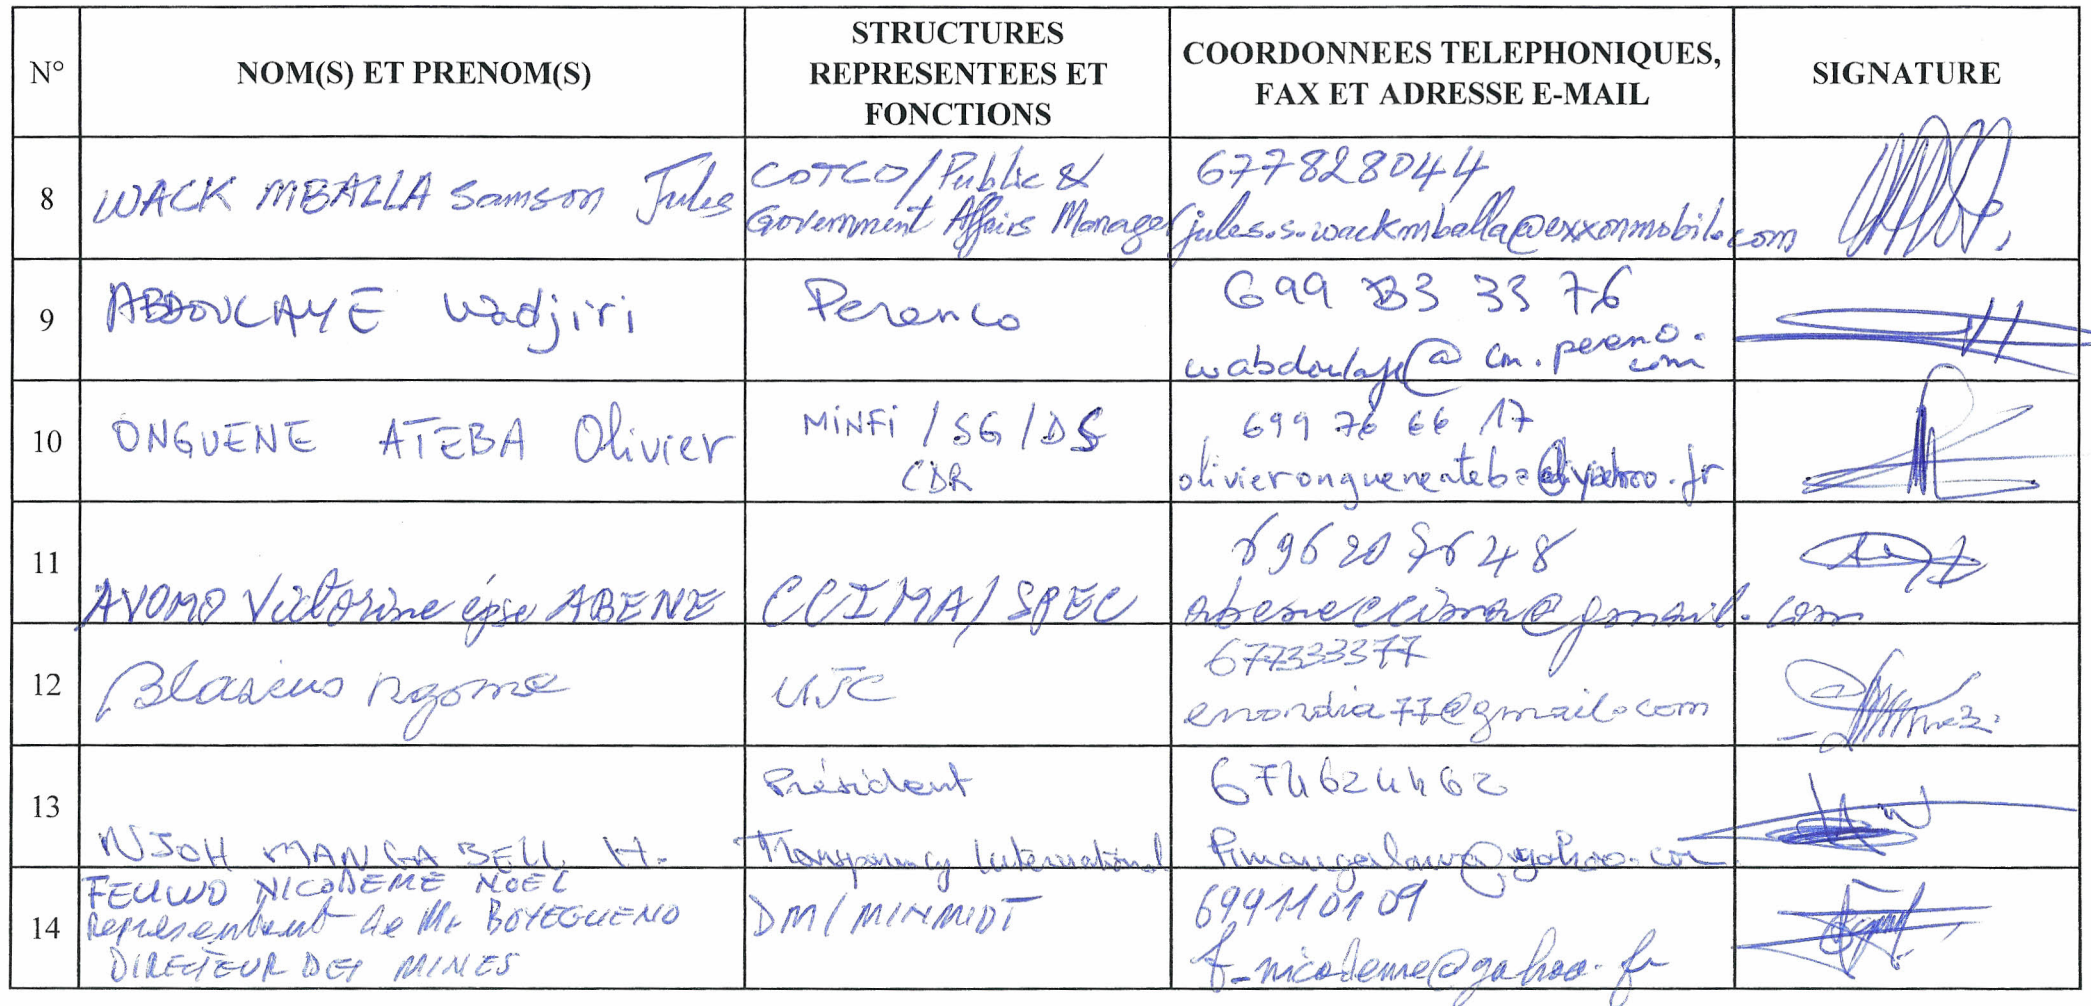 N°
NOM(S) ET PRENOM(S)
STRUCTURES
REPRESENTEES ET
FONCTIONS
COORDONNEES TELEPHONIQUES,
FAX ET ADRESSE E-MAIL
SIGNATURE
8
WACK MBALLA Samson Jules
COTCO/Public &
Government Affairs Manager
677828044
jules.s.wackmballa@exxonmobil.com
9
ABDOULAYE Wadjiri
Perenco
699 33 33 76
10
ONGUENE ATEBA Olivier
MINFI / SG / DS
CDR
699 76 66 17
11
AVOMO Victorine épse ABENE
CCIMA/SPEC
abeneccima@gmail.com
12
Blasius ngome
UJC
677333377
enondia77@gmail.com
13
NJOH MANGA BELL H.
Président
Transparency International
674624462
14
FEUWO NICODEME NOEL
Représentant de Mr BOYEGUENO
DIRECTEUR DES MINES
DM/MINMIDT
699110109
f_nicodeme@yahoo.fr